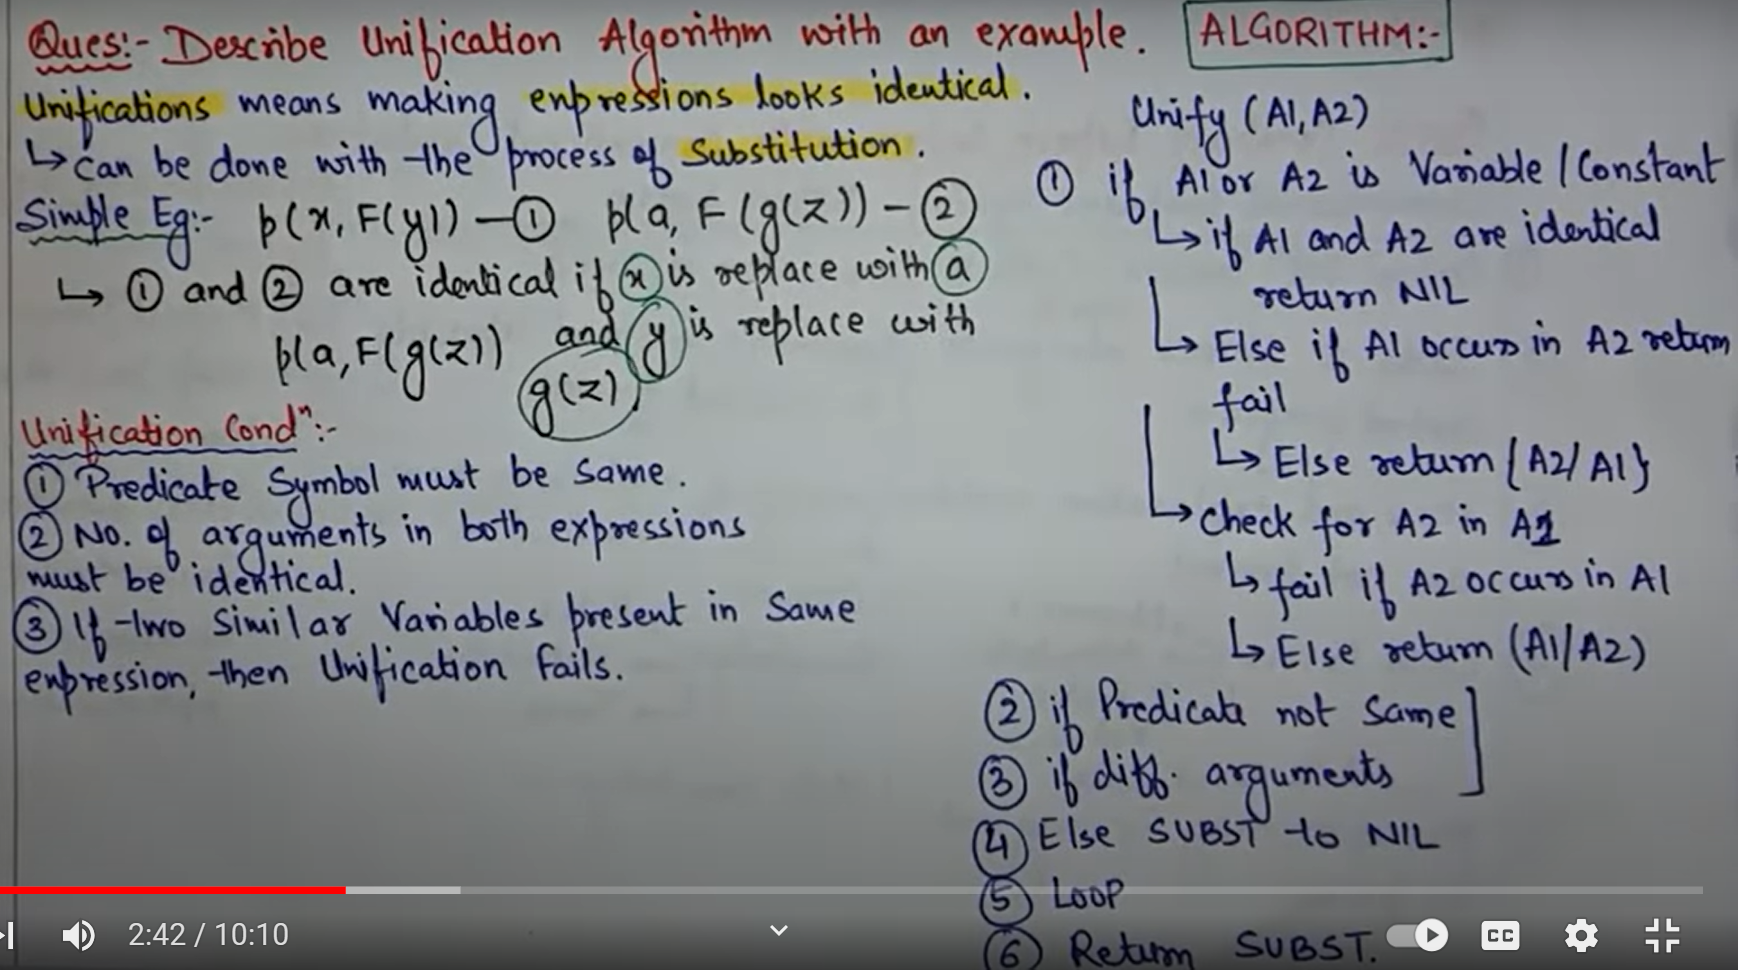 Ques:- Describe Unification Algorithm with an example.
Unifications means making enpressions looks identical.
↳ can be done with the process of Substitution.
Simple Eg:- p(x, F(y)) — ① p(a, F(g(z)) — ②
↳ ① and ② are identical if x is replace with a
p(a, F(g(z)) and y is replace with
g(z).
Unification Condⁿ:-
① Predicate Symbol must be same.
② No. of arguments in both expressions
must be identical.
③ If two Similar Variables present in Same
enpression, then Unification fails.
ALGORITHM:-
Unify (A1, A2)
① if A1 or A2 is Variable / Constant
↳ if A1 and A2 are identical
return NIL
↳ Else if A1 occurs in A2 return
fail
↳ Else return {A2/A1}
↳ Check for A2 in A1
↳ fail if A2 occurs in A1
↳ Else return (A1/A2)
② if Predicate not Same
③ if diff. arguments
④ Else SUBST to NIL
⑤ LOOP
⑥ Return SUBST.
2:42 / 10:10
CC